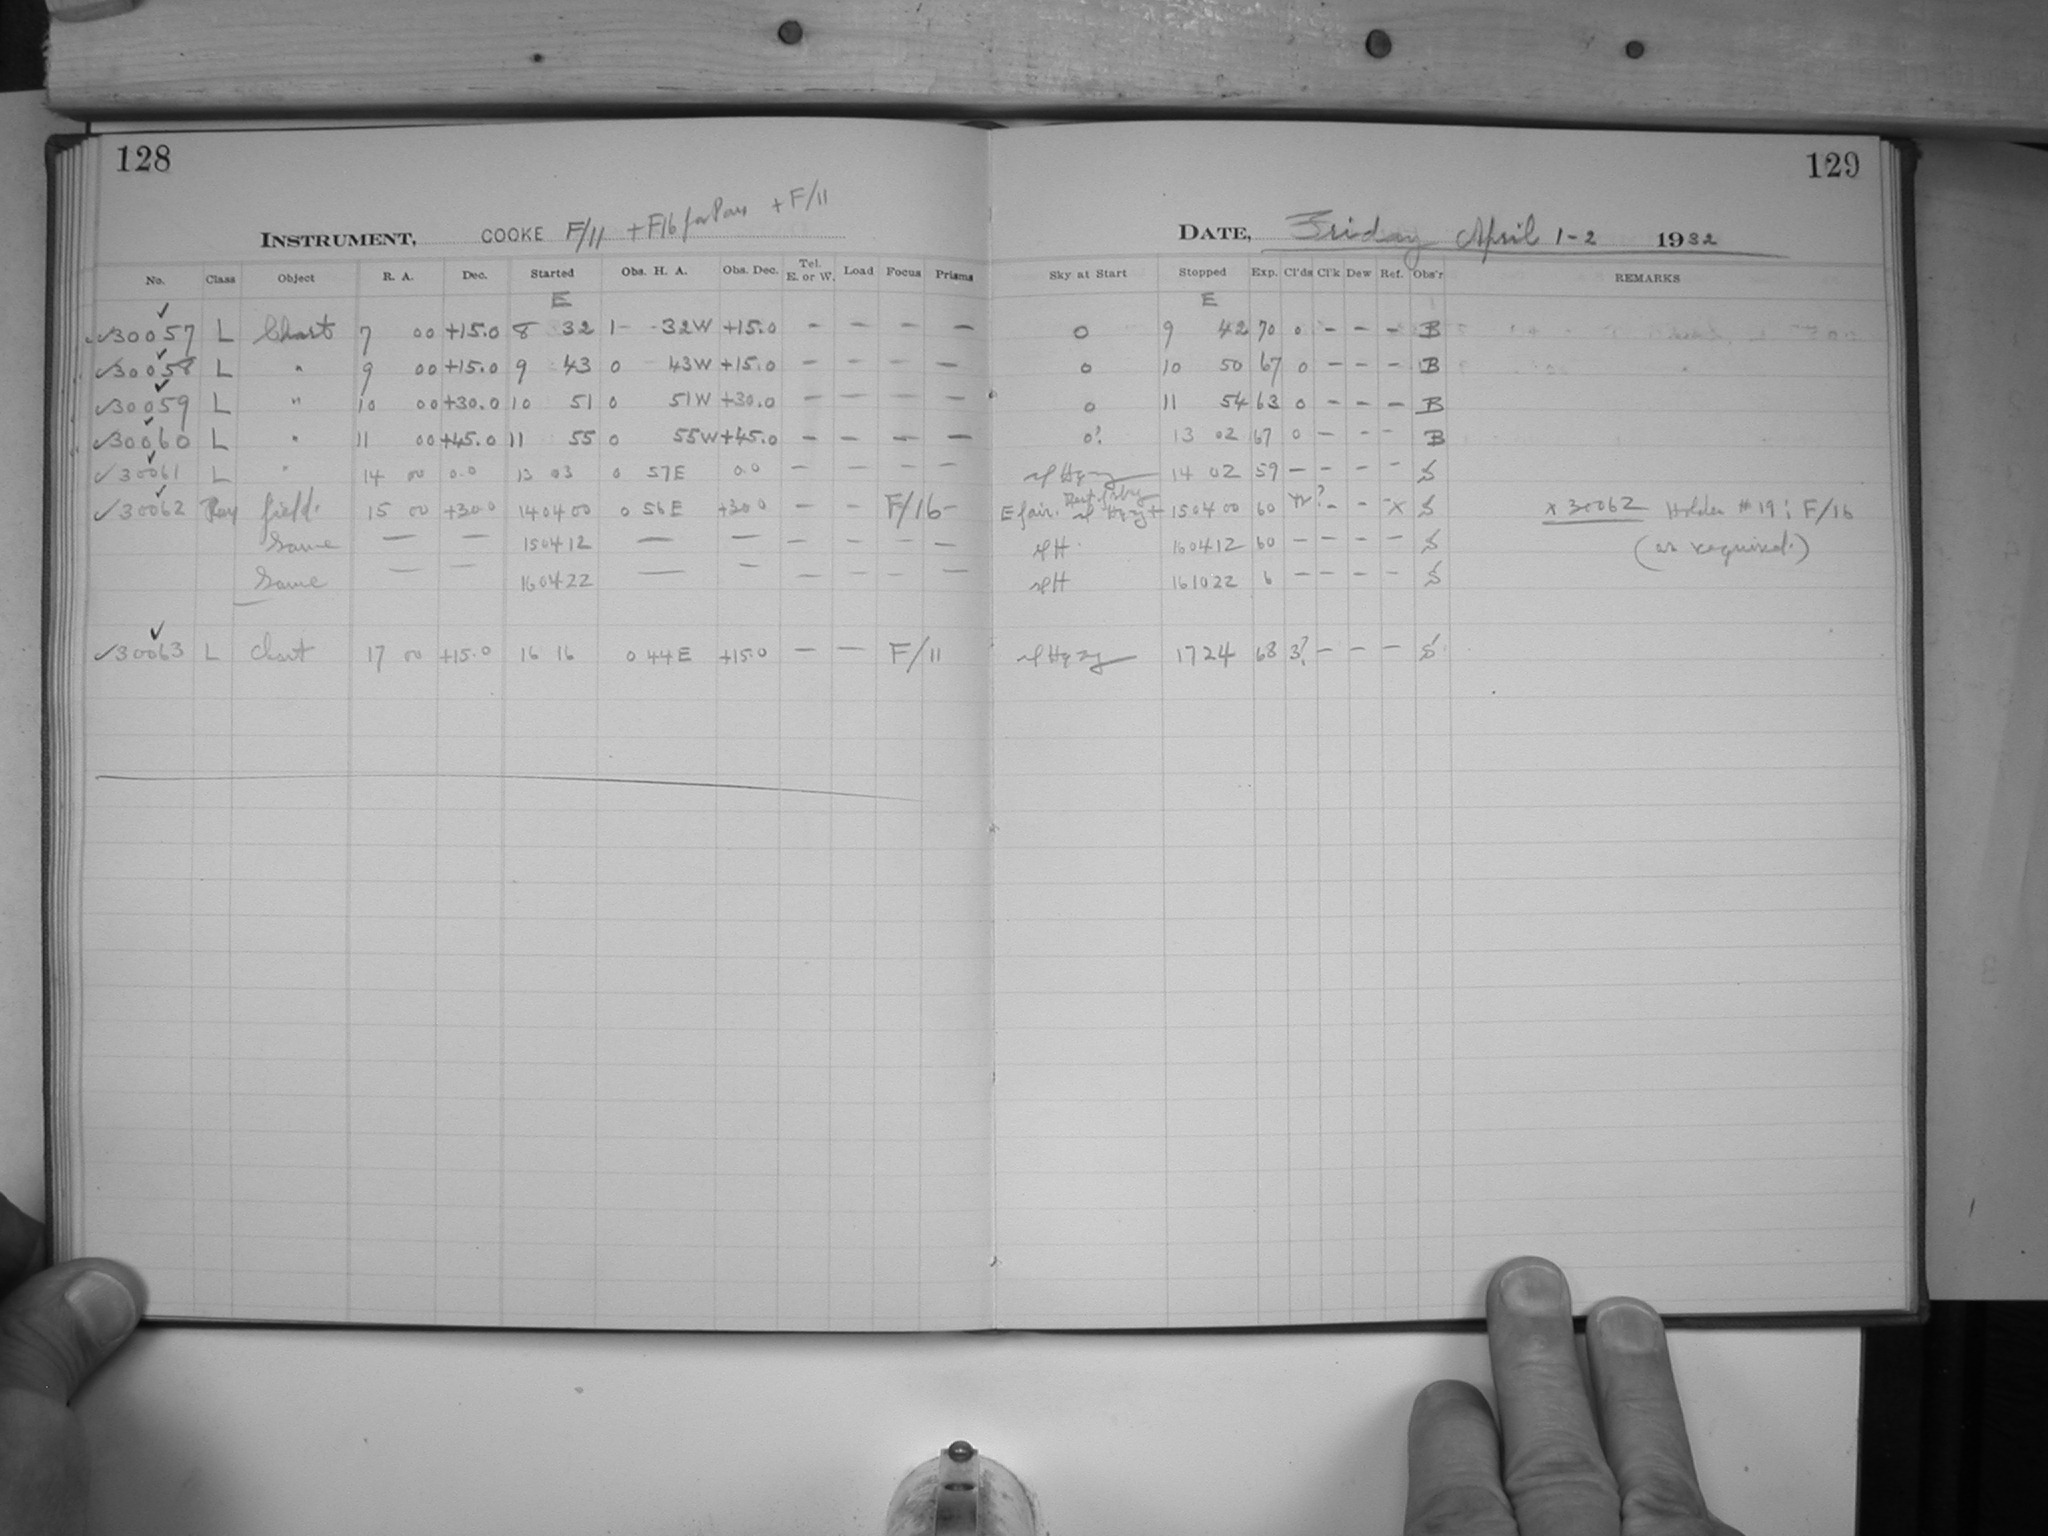 128
INSTRUMENT, COOKE F/11 + F16 for Pax + F/11
No. Class Object R. A. Dec. Started Obs. H. A. Obs. Dec. Tel. E. or W. Load Focus Prisms
E
✓30057 L Chart 7 00 +15.0 8 32 1 - 32W +15.0 - - - -
✓30058 L " 9 00 +15.0 9 43 0 43W +15.0 - - - -
✓30059 L " 10 00 +30.0 10 51 0 51W +30.0 - - - -
✓30060 L " 11 00 +45.0 11 55 0 55W +45.0 - - - -
✓30061 L " 14 00 0.0 13 03 0 57E 0.0 - - - -
✓30062 field. 15 00 +30.0 14 04 00 0 56E +30.0 - - F/16 -
Same - - 15 04 12 - - - - - -
Same - - 16 04 22 - - - - - -
✓30063 L Chart 17 00 +15.0 16 16 0 44E +15.0 - - F/11
129
DATE, Friday April 1-2 1932
Sky at Start Stopped Exp. Cl'ds Cl'k Dew Ref. Obs'r REMARKS
E
0 9 42 70 0 - - - B
0 10 50 67 0 - - - B
0 11 54 63 0 - - - B
0? 13 02 67 0 - - - B
14 02 59 - - - - S
E fair. 15 04 00 60 - - x S x 30062 Holder #19; F/16
16 04 12 60 - - - - S (as required.)
16 10 22 6 - - - - S
17 24 68 3? - - - S